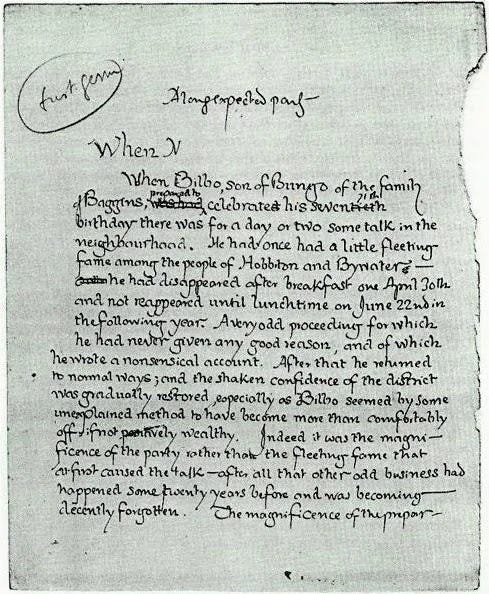 first germ
A long expected party
When N
When Bilbo, son of Bungo of the family
prepared to
of Baggins, was had celebrated his seventieth 71th
birthday there was for a day or two some talk in the
neighbourhood. He had once had a little fleeting
fame among the people of Hobbiton and Bywater —
he had disappeared after breakfast one April 30th
and not reappeared until lunchtime on June 22nd in
the following year. A very odd proceeding for which
he had never given any good reason, and of which
he wrote a nonsensical account. After that he returned
to normal ways; and the shaken confidence of the district
was gradually restored, especially as Bilbo seemed by some
unexplained method to have become more than comfortably
off, if not positively wealthy. Indeed it was the magni-
ficence of the party rather than the fleeting fame that
at first caused the talk — after all that other odd business had
happened some twenty years before and was becoming
decently forgotten. The magnificence of the prepar-